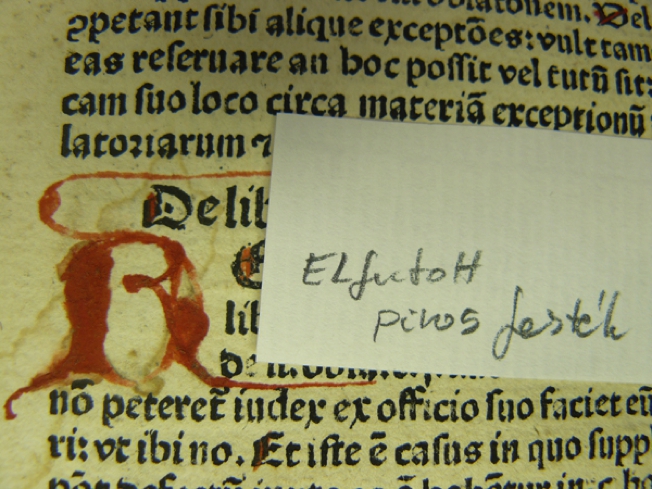 ꝯpetant sibi alique exceptōes: vult tam
eas reseruare an hoc possit vel tutū sit:
cam suo loco circa materiā exceptionū
latoriarum ⁊
De lib
R
lib
de
nō peteret iudex ex officio suo faciet eū
ri: vt ibi no. Et iste ē casus in quo supp
ELfutott
piros festék